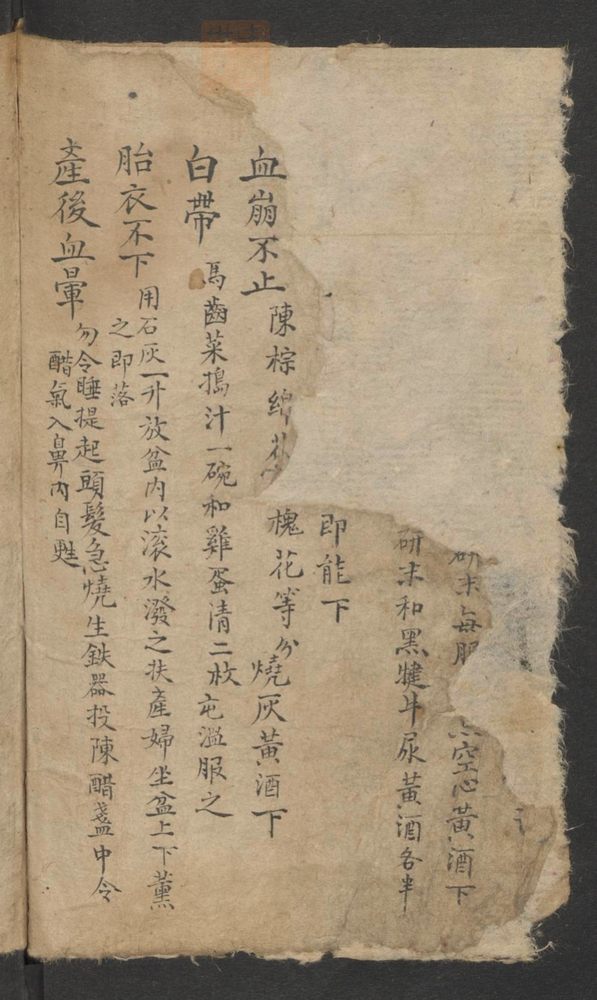 研末每服 空心黃酒下
研末和黑犍牛尿黃酒各半
即能下
血崩不止 陳棕 綿花 槐花等分燒灰黃酒下
白帶 馬齒菜搗汁一碗和雞蛋清二枚屯溫服之
胎衣不下 用石灰一升放盆內以滾水潑之扶產婦坐盆上下薰
之即落
產後血暈 勿令睡提起頭髮急燒生鉄器投陳醋盞中令
醋氣入鼻內自甦